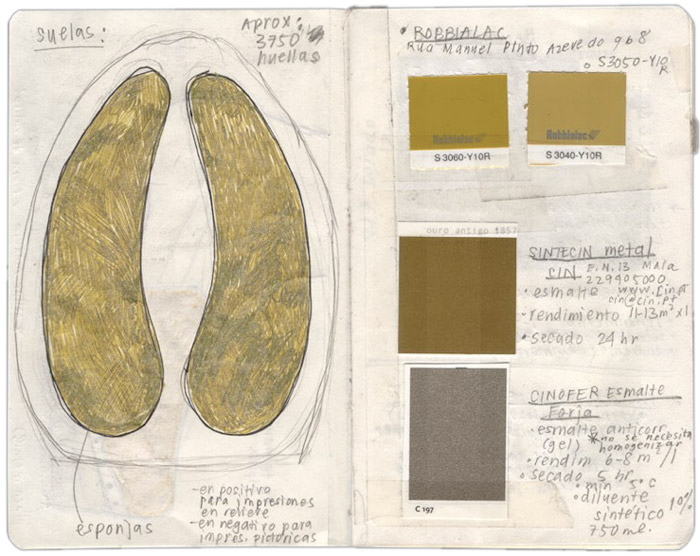 suelas:
Aprox:
3750
huellas
esponjas
-en positivo
para impresiones
en relieve
-en negativo para
impres. pictóricas
• ROBBIALAC
Rua Manuel Pinto Azevedo 968
• S3050-Y10
R
Robbialac
S 3060-Y10R
Robbialac
S 3040-Y10R
ouro antigo 1857
SINTECIN metal
SIN E.N.13 Maia
229405000
• esmalte www.cin.pt
cin@cin.pt
• rendimiento 11-13m²xl
• secado 24 hr
CINOFER Esmalte
Forja
• esmalte anticorr
(gel) *no se necesita
homogenizar
• rendim 6-8 m²/l
• secado 5 hr
• min 5°C
• diluente
sintético 10%
750ml.
C 197